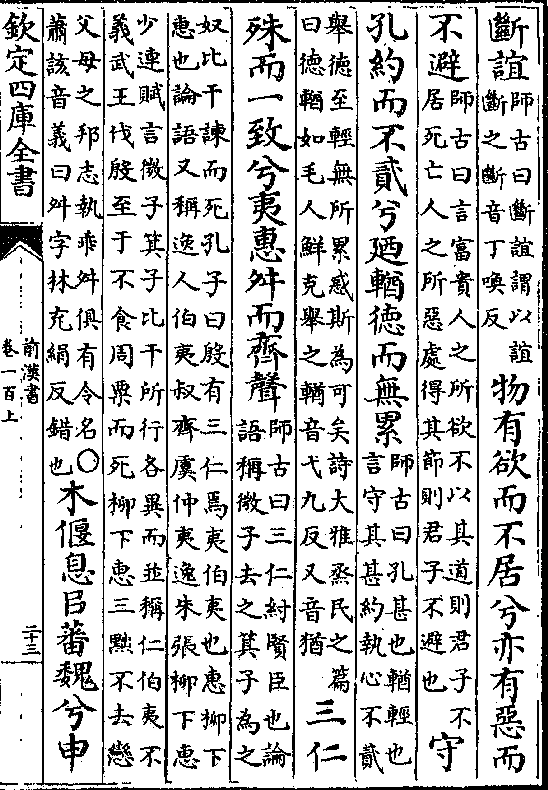 斷誼
師古曰斷誼謂以誼
斷之斷音丁喚反
物有欲而不居兮亦有惡而
不避
師古曰言富貴人之所欲不以其道則君子不
居死亡人之所惡處得其節則君子不避也
守
孔約而不貳兮廼輶德而無累
師古曰孔甚也輶輕也
言守其甚約執心不貳
舉德至輕無所累惑斯為可矣詩大雅烝民之篇
曰德輶如毛人鮮克舉之輶音弋九反又音猶
三仁
殊而一致兮夷惠舛而齊聲
師古曰三仁紂賢臣也論
語稱微子去之箕子為之
奴比干諫而死孔子曰殷有三仁焉夷伯夷也惠柳下
惠也論語又稱逸人伯夷叔齊虞仲夷逸朱張柳下惠
少連賦言微子箕子比干所行各異而並稱仁伯夷不
義武王伐殷至于不食周粟而死柳下惠三黜不去戀
父母之邦志執乖舛俱有令名〇
蕭該音義曰舛字林充絹反錯也
木偃息㠯蕃魏兮申
欽定四庫全書
前漢書
卷一百上
二十三